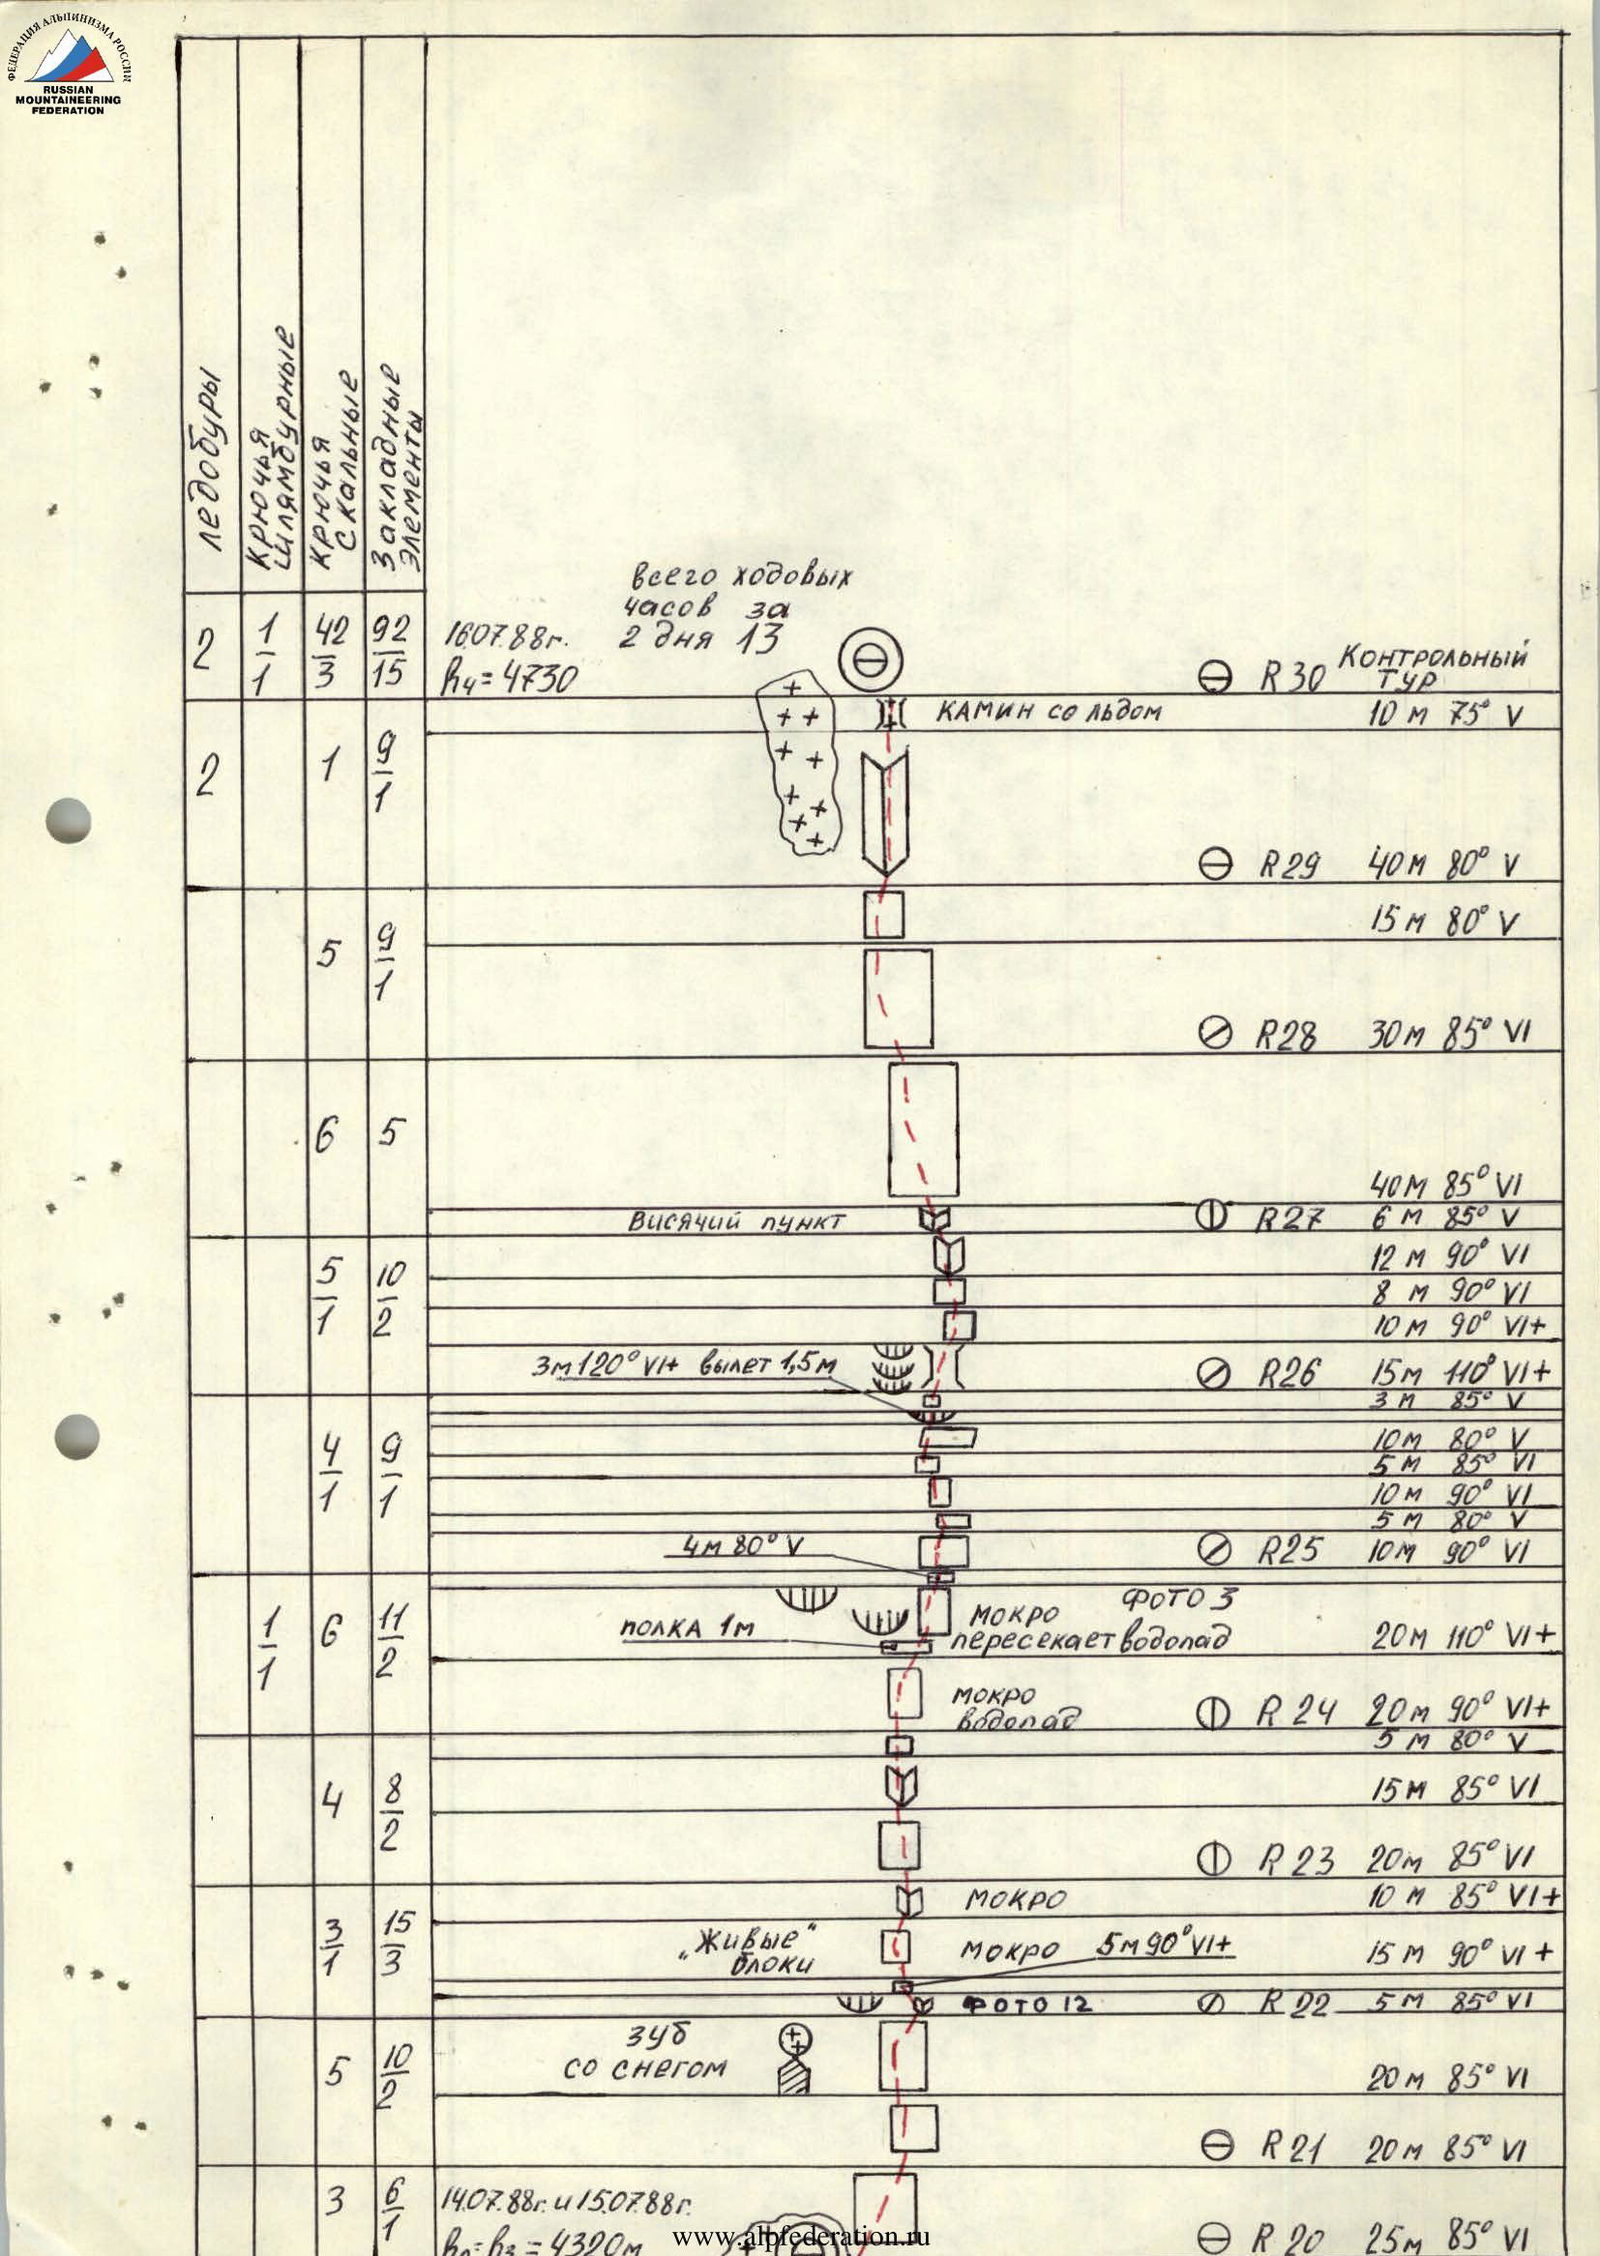 ФЕДЕРАЦИЯ АЛЬПИНИЗМА РОССИИ
RUSSIAN
MOUNTAINEERING
FEDERATION
Ледобуры
Крючья
шлямбурные
Крючья
скальные
Закладные
элементы
всего ходовых
часов за
2 дня 13
2 1/1 42/3 92/15
16.07.88г.
h4 = 4730
R30 Контрольный
тур
камин со льдом 10 м 75° V
2 1 9/1
R29 40 м 80° V
15 м 80° V
5 9/1
R28 30 м 85° VI
6 5
40 м 85° VI
Висячий пункт R27 6 м 85° V
12 м 90° VI
5/1 10/2
8 м 90° VI
10 м 90° VI+
3м 120° VI+ вылет 1,5 м R26 15 м 110° VI+
3 м 85° V
10 м 80° V
4/1 9/1
5 м 85° VI
10 м 90° VI
5 м 80° V
4 м 80° V R25 10 м 90° VI
фото 3
1/1 6 11/2
полка 1 м мокро
пересекает водопад 20 м 110° VI+
мокро
водопад R24 20 м 90° VI+
5 м 80° V
4 8/2
15 м 85° VI
R23 20 м 85° VI
мокро 10 м 85° VI+
3/1 15/3
„Живые“
блоки мокро 5 м 90° VI+ 15 м 90° VI+
фото 12 R22 5 м 85° VI
зуб
со снегом
5 10/2
20 м 85° VI
R21 20 м 85° VI
3 6/1
14.07.88г. и 15.07.88г.
h2 = h3 = 4320 м
R20 25 м 85° VI
www.alpfederation.ru